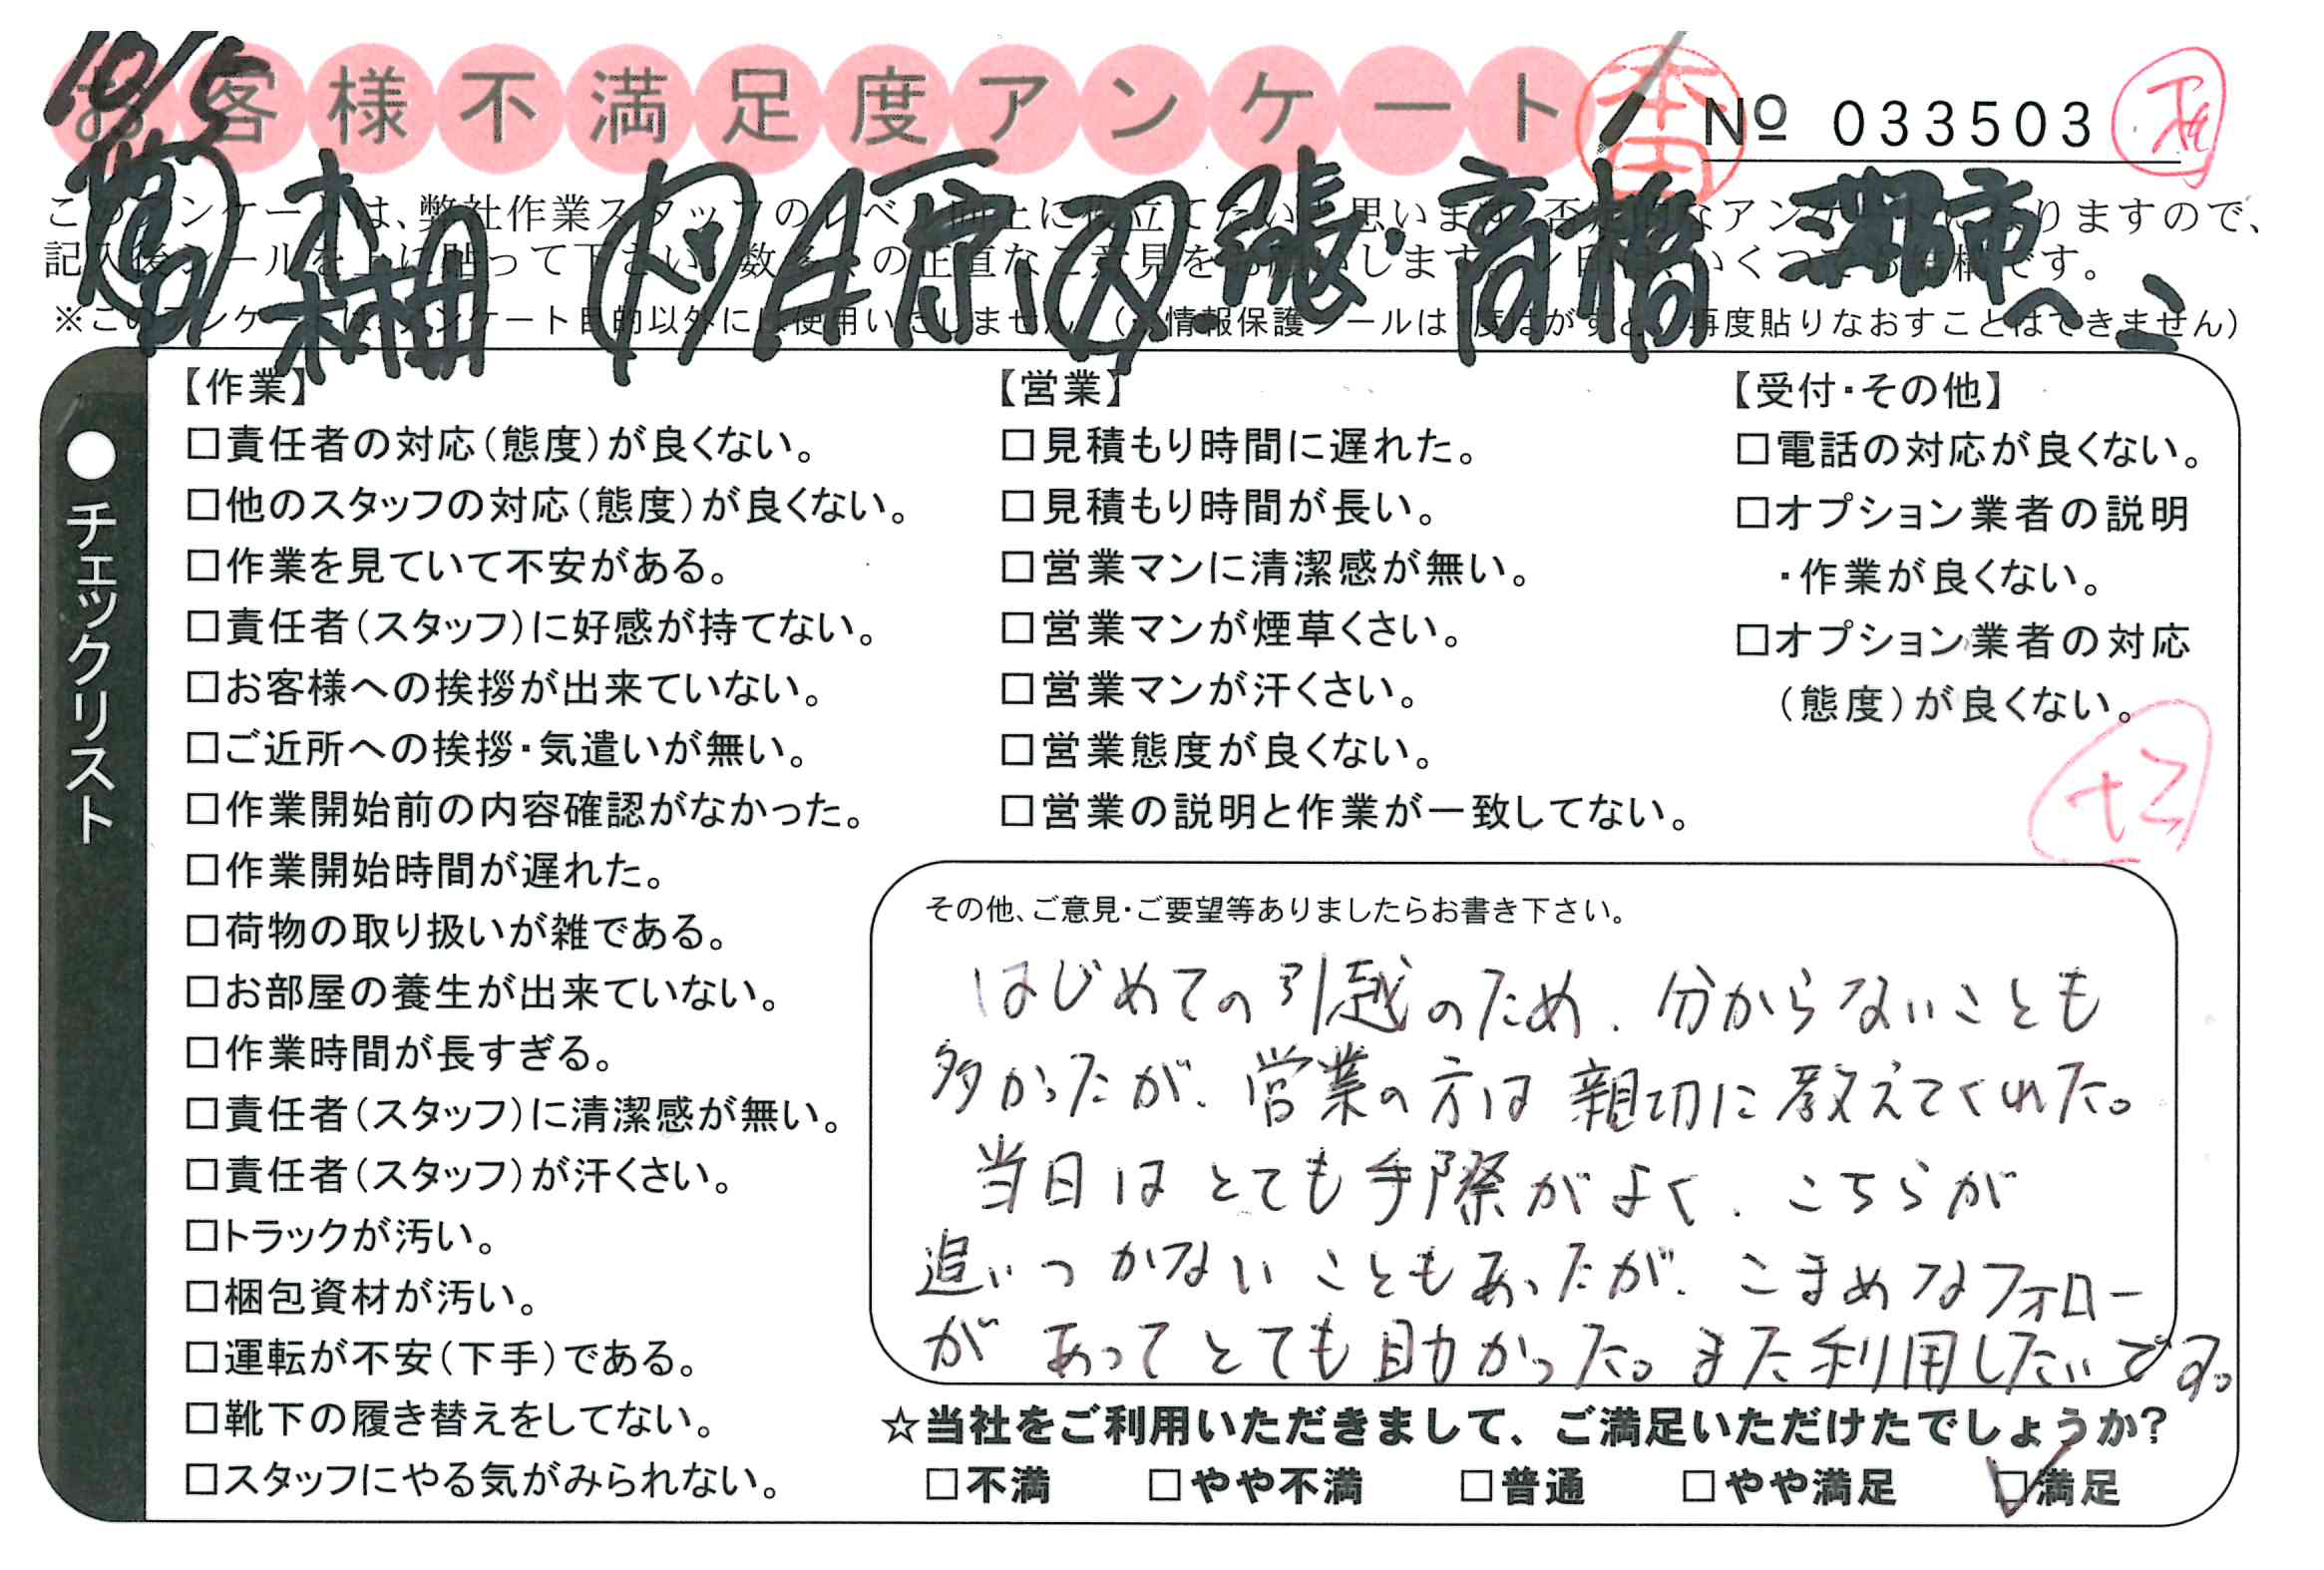 10/5
お客様不満足度アンケート
№ 033503
このアンケートは、弊社作業スタッフのレベル向上に役立てたいと思います。否定的なアンケートになりますので、
記入後シールを上に貼って下さい。数多くの正直なご意見をお願いします。レ印は、いくつでも結構です。
※このアンケートは、アンケート目的以外には使用いたしません。(※情報保護シールは1度はがすと、再度貼りなおすことはできません)
高橋
●チェックリスト
【作業】
□責任者の対応(態度)が良くない。
□他のスタッフの対応(態度)が良くない。
□作業を見ていて不安がある。
□責任者(スタッフ)に好感が持てない。
□お客様への挨拶が出来ていない。
□ご近所への挨拶・気遣いが無い。
□作業開始前の内容確認がなかった。
□作業開始時間が遅れた。
□荷物の取り扱いが雑である。
□お部屋の養生が出来ていない。
□作業時間が長すぎる。
□責任者(スタッフ)に清潔感が無い。
□責任者(スタッフ)が汗くさい。
□トラックが汚い。
□梱包資材が汚い。
□運転が不安(下手)である。
□靴下の履き替えをしてない。
□スタッフにやる気がみられない。
【営業】
□見積もり時間に遅れた。
□見積もり時間が長い。
□営業マンに清潔感が無い。
□営業マンが煙草くさい。
□営業マンが汗くさい。
□営業態度が良くない。
□営業の説明と作業が一致してない。
【受付・その他】
□電話の対応が良くない。
□オプション業者の説明
・作業が良くない。
□オプション業者の対応
(態度)が良くない。
その他、ご意見・ご要望等ありましたらお書き下さい。
はじめての引越のため、分からないことも
多かったが、営業の方は親切に教えてくれた。
当日はとても手際がよく、こちらが
追いつかないこともあったが、こまめなフォロー
があってとても助かった。また利用したいです。
☆当社をご利用いただきまして、ご満足いただけたでしょうか?
□不満 □やや不満 □普通 □やや満足 ☑満足